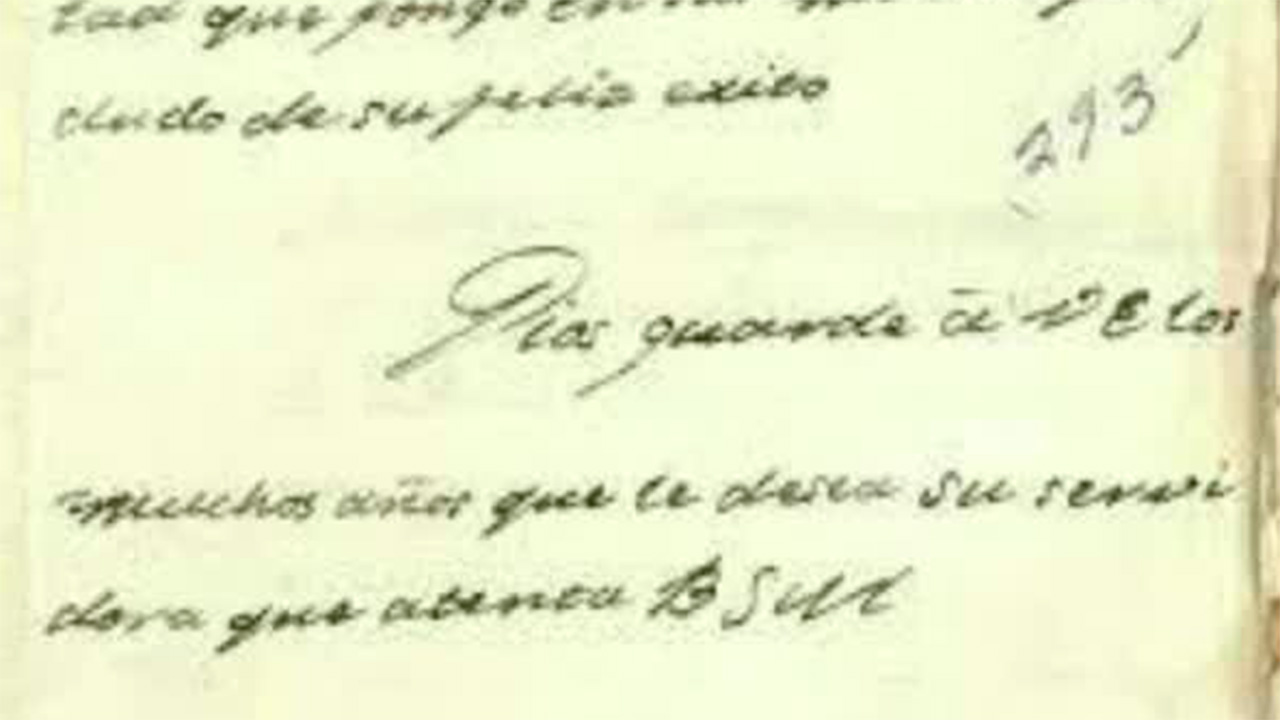 tad que pongo en
cludo de su feliz exito
293
Dios guarde á V E los
muchos años que le desea su servi
dora que atenta B S M